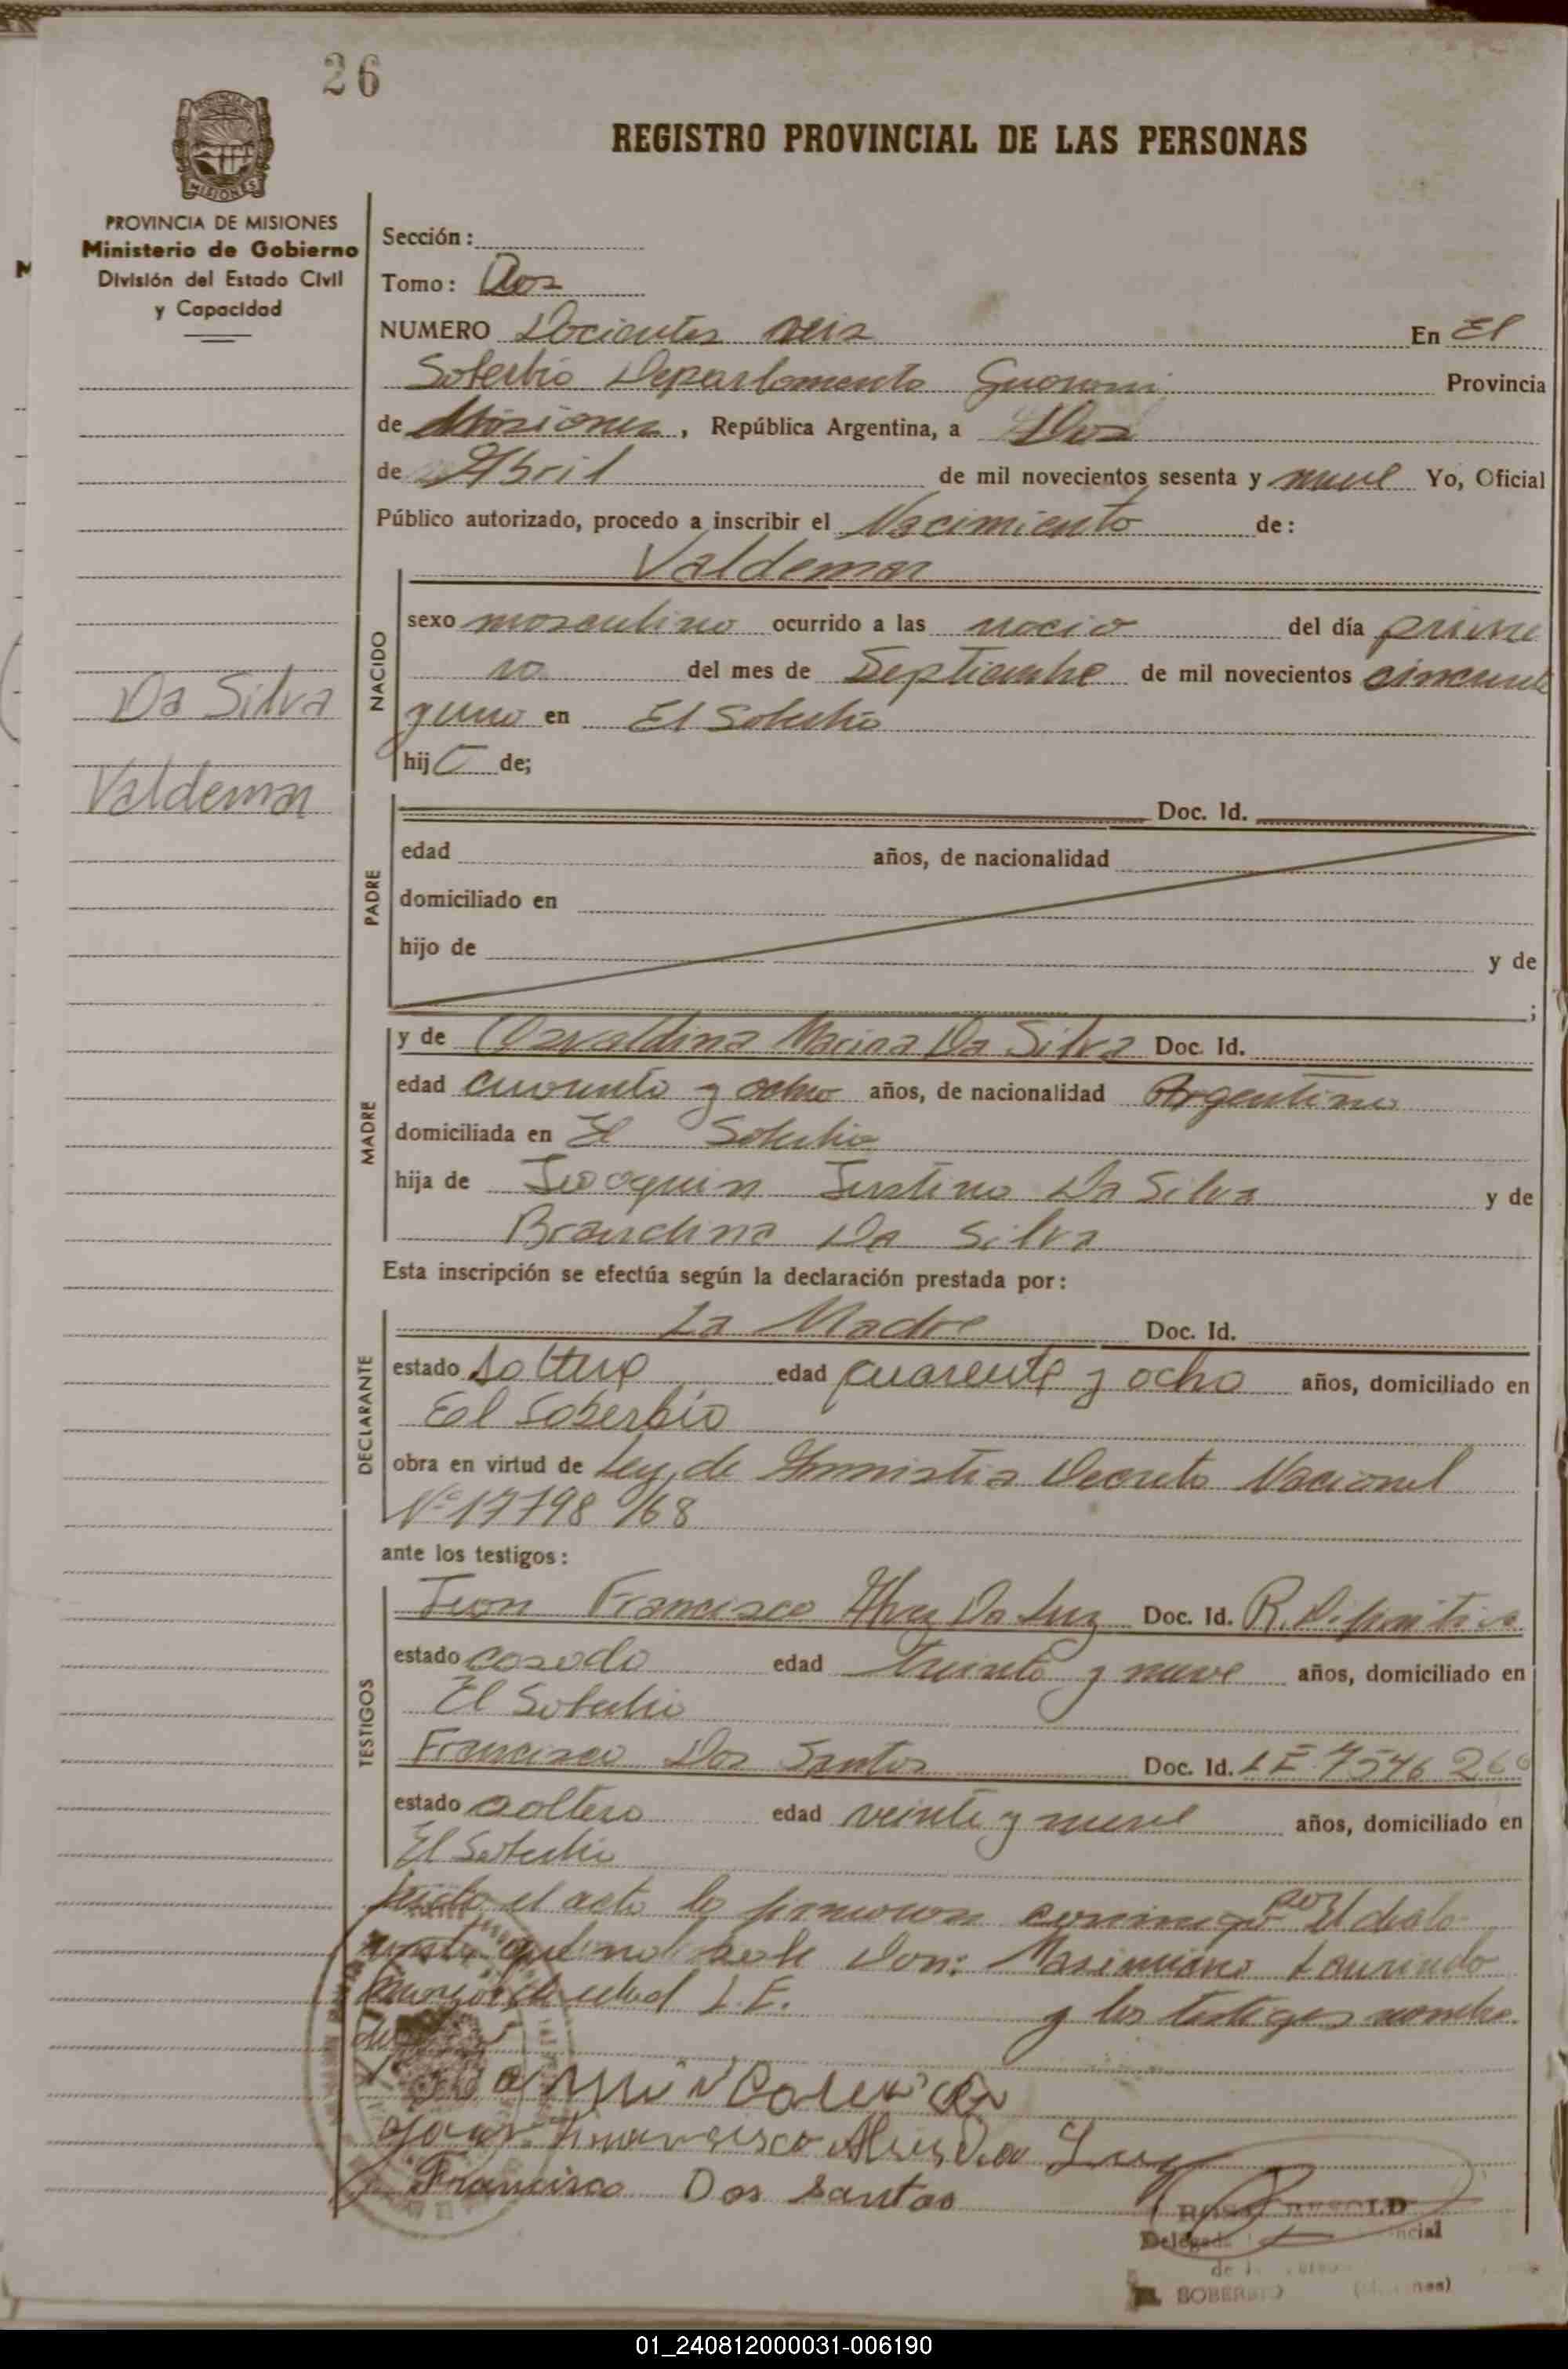 26
REGISTRO PROVINCIAL DE LAS PERSONAS
MISIONES
PROVINCIA DE MISIONES
Ministerio de Gobierno
División del Estado Civil
y Capacidad
Sección:
Tomo: Dos
NUMERO Docientos seis En El
Soberbio Departamento Guarani Provincia
de Misiones, República Argentina, a Dos
de Abril de mil novecientos sesenta y nueve Yo, Oficial
Público autorizado, procedo a inscribir el Nacimiento de:
Valdemar
NACIDO
sexo masculino ocurrido a las nacio del día prime
ro del mes de Septiembre de mil novecientos cincuenta
y uno en El Soberbio
hijo de;
Da Silva
Valdemar
PADRE
Doc. Id.
edad años, de nacionalidad
domiciliado en
hijo de y de
;
MADRE
y de Marina Da Silva Doc. Id.
edad cuarenta y ocho años, de nacionalidad Argentina
domiciliada en El Soberbio
hija de Joaquin Justino Da Silva y de
Brandina Da Silva
Esta inscripción se efectúa según la declaración prestada por:
DECLARANTE
La Madre Doc. Id.
estado soltera edad cuarenta y ocho años, domiciliado en
El Soberbio
obra en virtud de Ley de Amnistia Decreto Nacional
Nº 17798/68
ante los testigos:
TESTIGOS
Juan Francisco Alvez Da Luz Doc. Id. R. Difinitiva
estado casado edad treinta y nueve años, domiciliado en
El Soberbio
Francisco Dos Santos Doc. Id. L E 7546 260
estado soltero edad veinte y nueve años, domiciliado en
El Soberbio
el acto lo firmaron conmigo por el decla
rante que no sabe Don: Maximiano Laurindo
mayor de edad L.E. y los testigos nombra
dos
Francisco Alves Da Luz
Francisco Dos Santos
Delegad ncial
SOBERBIO
01_240812000031-006190